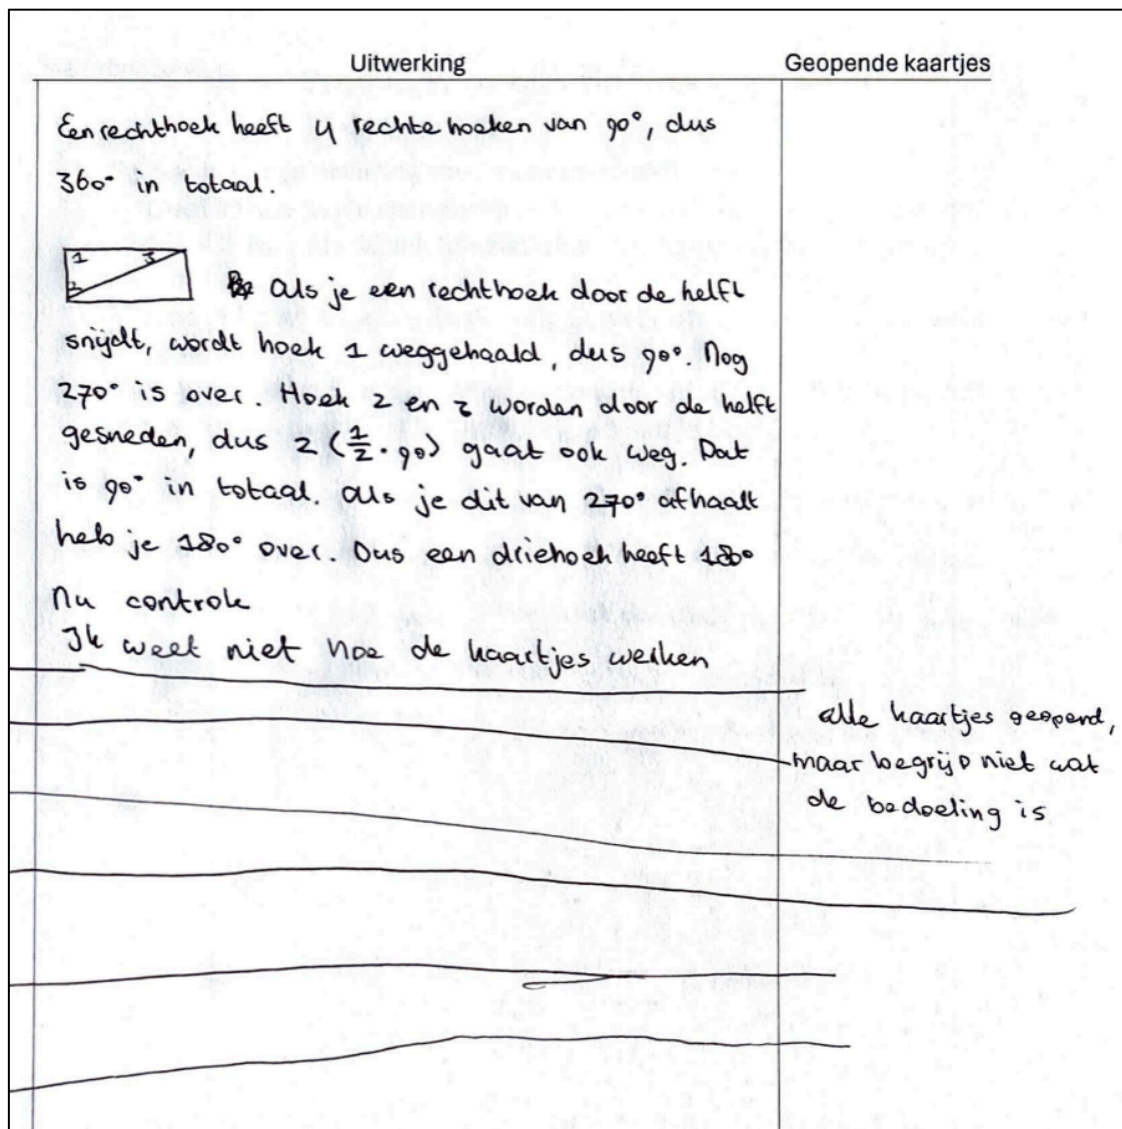 Uitwerking
Geopende kaartjes
Een rechthoek heeft 4 rechte hoeken van 90°, dus
360° in totaal.
1 3
2
Als je een rechthoek door de helft
snijdt, wordt hoek 1 weggehaald, dus 90°. Nog
270° is over. Hoek 2 en 3 worden door de helft
gesneden, dus 2 (1/2 · 90) gaat ook weg. Dat
is 90° in totaal. Als je dit van 270° afhaalt
heb je 180° over. Dus een driehoek heeft 180°
Nu controle
Ik weet niet hoe de kaartjes werken
alle kaartjes geopend,
maar begrijp niet wat
de bedoeling is